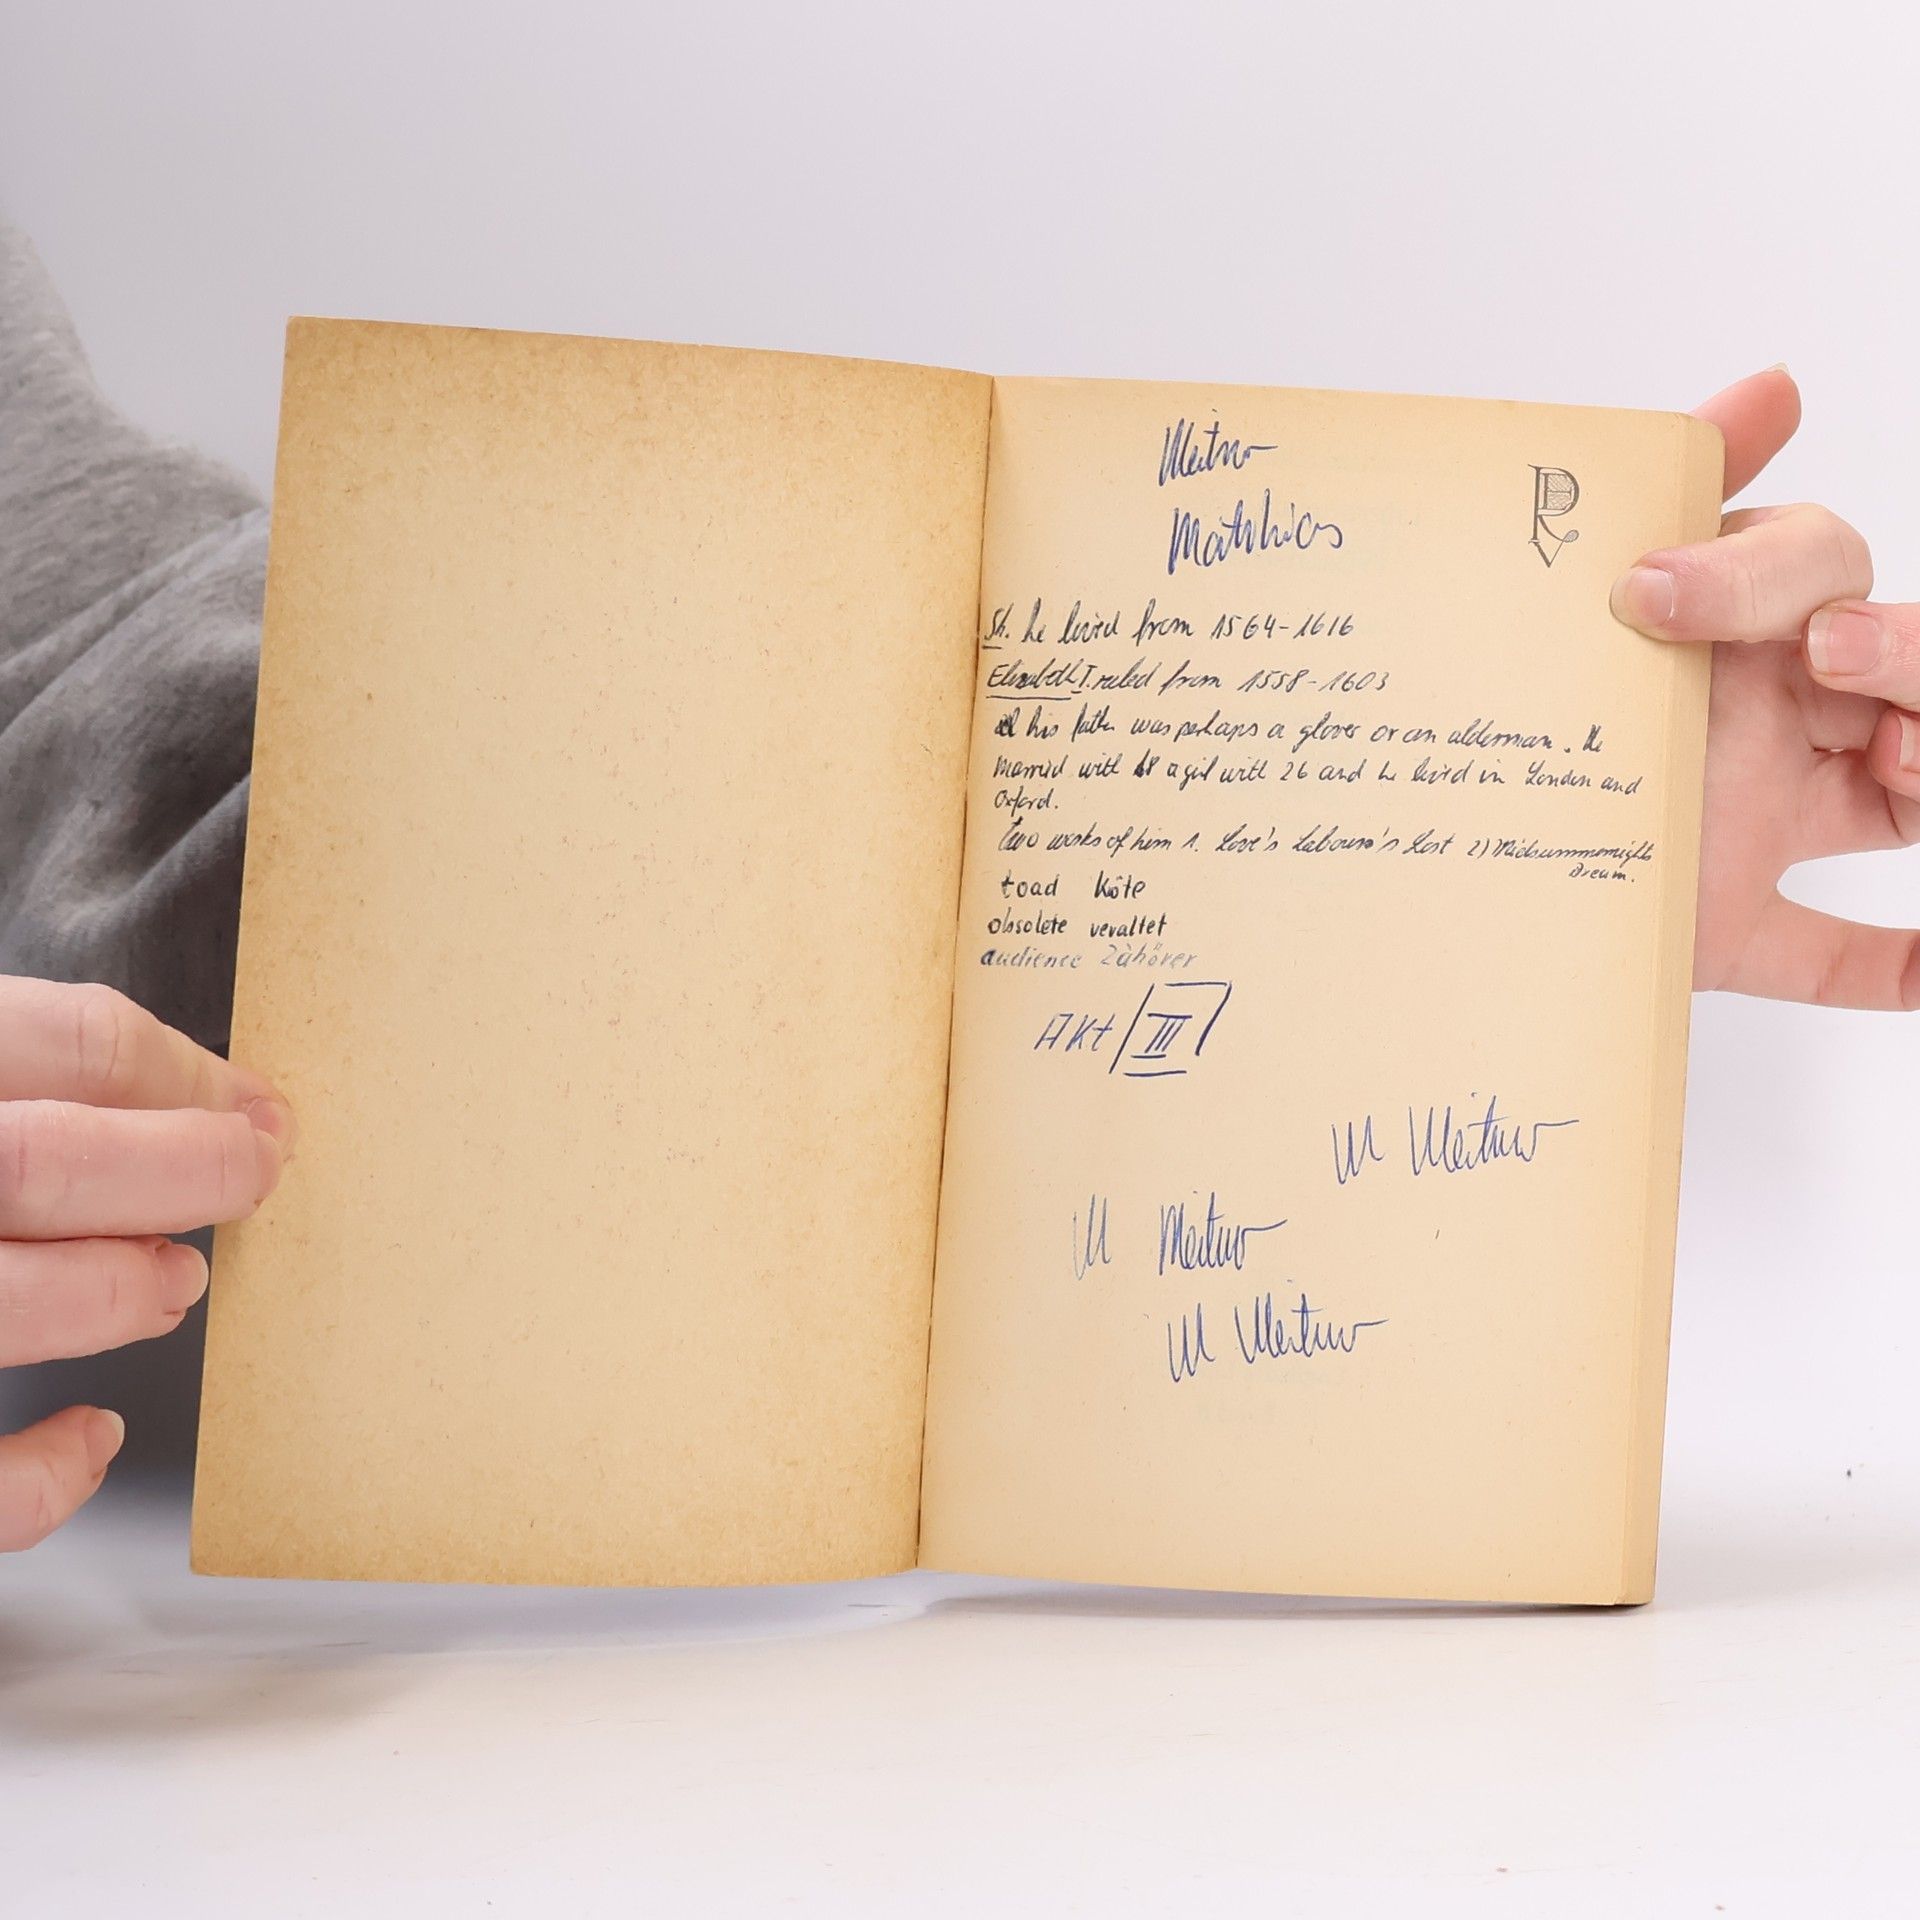 Matthias
PRV
Sh. he lived from 1564-1616
Elizabeth I. ruled from 1558-1603
his father was perhaps a glover or an alderman. He
married with 18 a girl with 26 and he lived in London and
Oxford.
Two works of him 1. Love's Labours's Lost 2) Midsummernights
Dream.
toad Köte
obsolete veraltet
audience Zühörer
Akt III
M
M
M